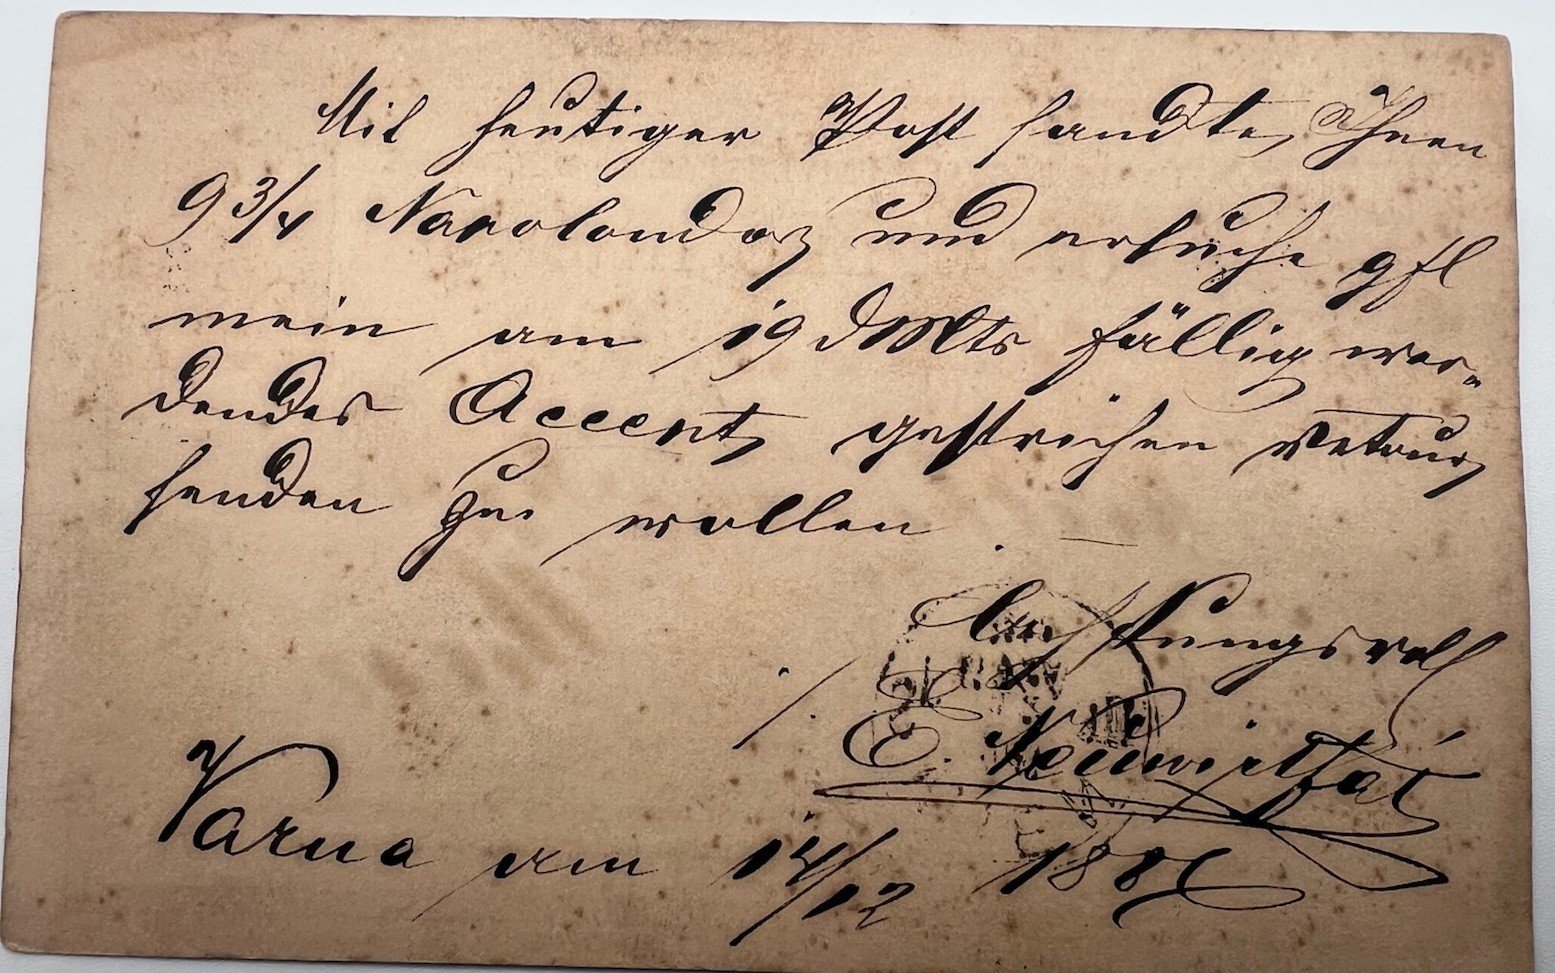 Mit heutiger Post sandte Ihnen
9 3/4 Napoleondor und ersuche gfl
mein am 19 d Mts fällig wer-
dendes Accept gestrichen retour
senden zu wollen. —
Achtungsvoll
E.
Varna am 14/12 188